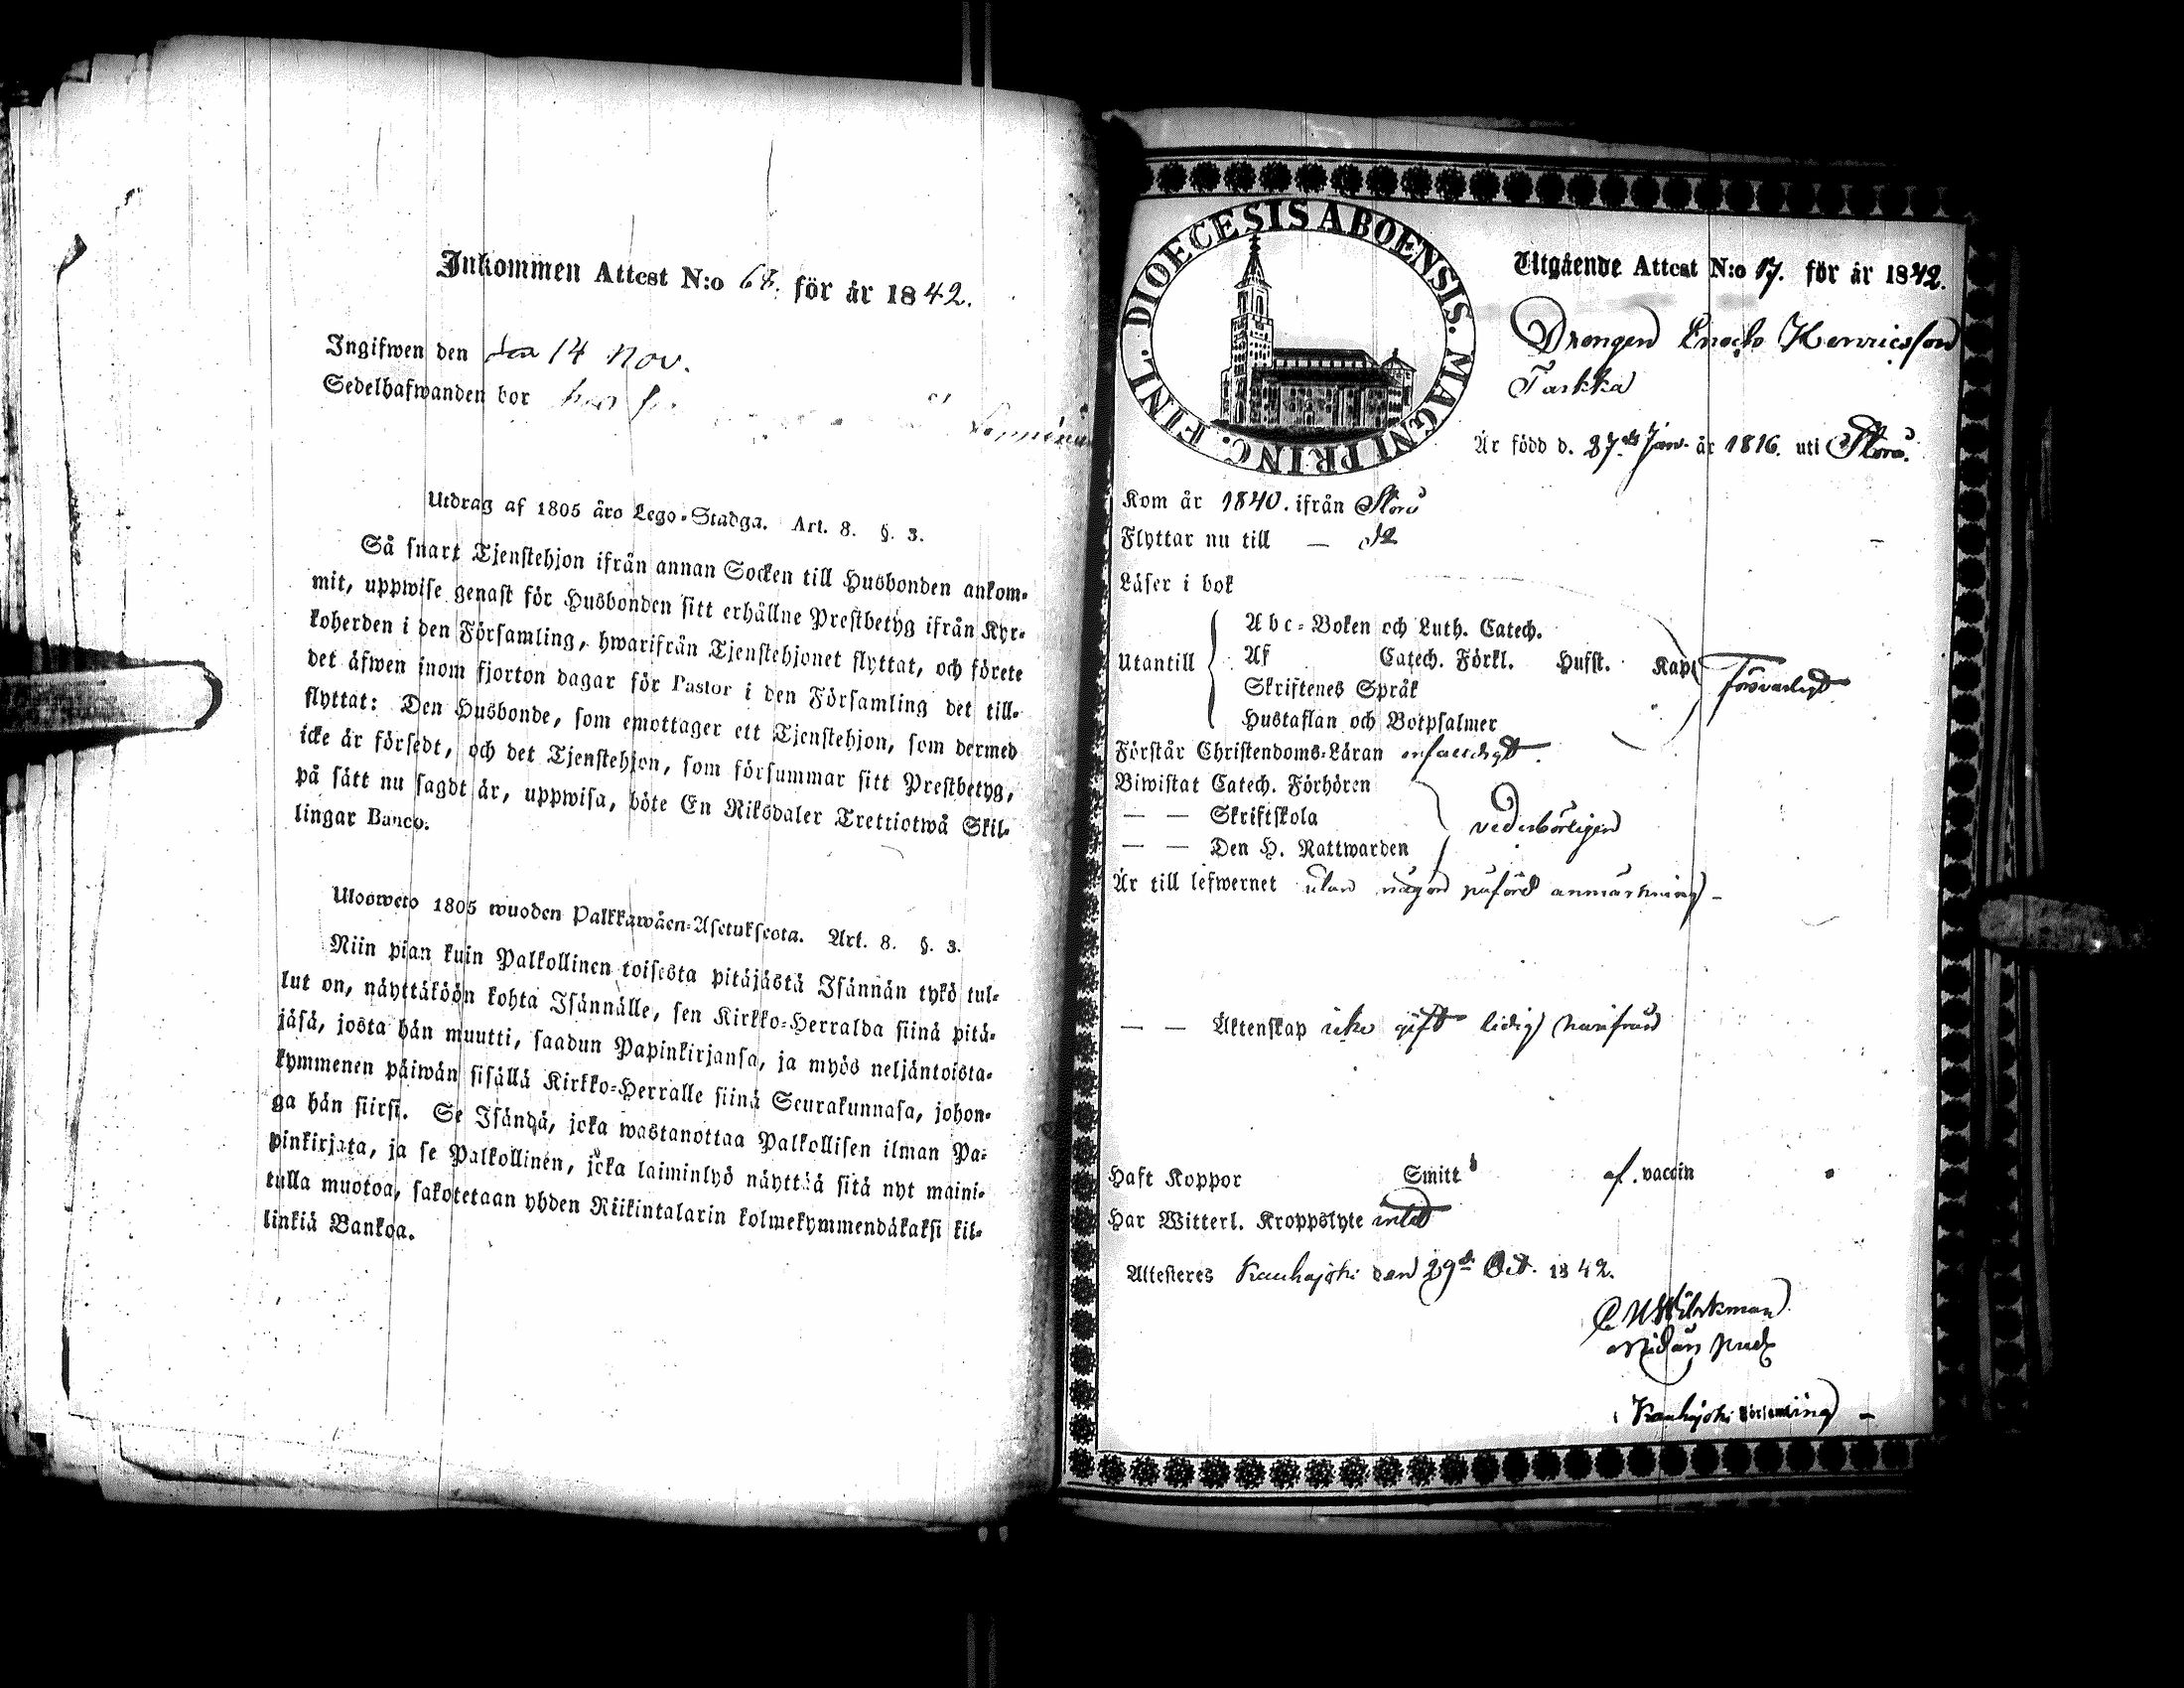 Inkommen Attest N:o 68. för år 1842.
Ingifwen den den 14 Nov.
Sedelhafwanden bor
Utdrag af 1805 års Lego-Stadga. Art. 8. §. 3.
Så snart Tjenstehjon ifrån annan Socken till Husbonden ankom-
mit, uppwise genast för Husbonden sitt erhållne Prestbetyg ifrån Kyr-
koherden i den Församling, hwarifrån Tjenstehjonet flyttat, och förete
det äfwen inom fjorton dagar för Pastor i den Församling det till-
flyttat: Den Husbonde, som emottager ett Tjenstehjon, som dermed
icke är försedt, och det Tjenstehjon, som försummar sitt Prestbetyg,
på sätt nu sagdt är, uppwisa, böte En Riksdaler Trettiotwå Skil-
lingar Banco.
Ulosweto 1805 wuoden Palkkawäen-Asetuksesta. Art. 8. §. 3.
Niin pian kuin Palkollinen toisesta pitäjästä Isännän tykö tul-
lut on, näyttäköön kohta Isännälle, sen Kirkko-Herralda siinä pitä-
jäsä, josta hän muutti, saadun Papinkirjansa, ja myös neljäntoista-
kymmenen päiwän sisällä Kirkko-Herralle siinä Seurakunnasa, johon-
ga hän siirsi. Se Isändä, joka wastanottaa Palkollisen ilman Pa-
pinkirjata, ja se Palkollinen, joka laiminlyö näyttää sitä nyt maini-
tulla muotoa, sakotetaan yhden Riikintalarin kolmekymmendäkaksi kil-
linkiä Bankoa.
DIOECESIS ABOENSIS. MAGNI PRINC. FINL.
Utgående Attest N:o 17. för år 1842.
Drengen Enoch Henricsson
Taskka
Är född d. 27de Jan. år 1816. uti Storå.
Kom år 1840. ifrån Storå
Flyttar nu till — do
Läser i bok
Utantill
Abc-Boken och Luth. Catech.
Af Catech. Förkl. Husst. Kap
Skriftenes Språk
Hustaflan och Botpsalmer
Försvarligt
Förstår Christendoms-Läran enfaldigt.
Biwistat Catech. Förhören
— — Skriftskola
— — Den H. Nattwarden
vederbörligen
Är till lefwernet utan någon påförd anmärkning —
— — Äktenskap icke gift ledig härifrån
Haft Koppor Smitt af. vaccin
Har Witterl. Kroppslyte intet
Attesteres Kauhajoki den 29de Oct. 1842.
i Kauhajoki Församling —